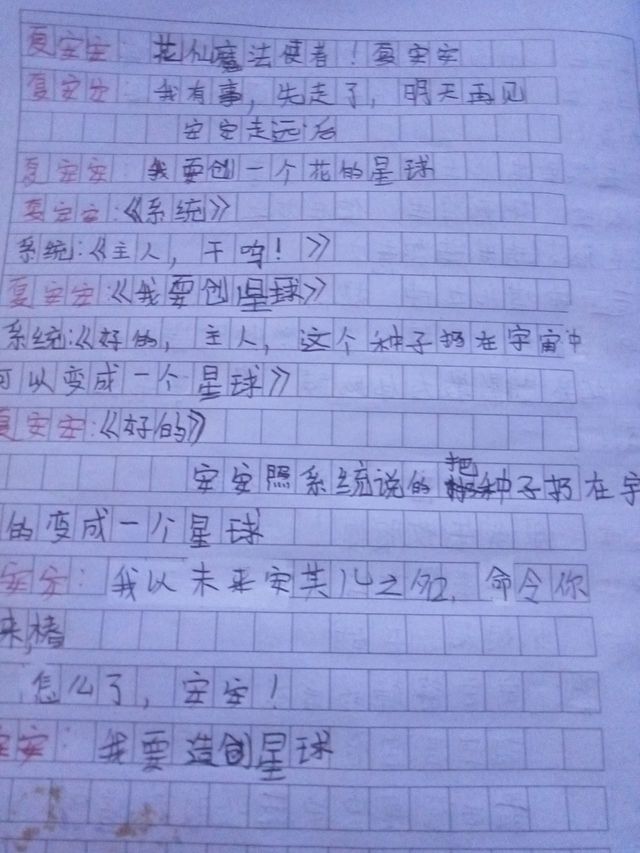 夏安安：花仙魔法使者！夏安安
夏安安：我有事，先走了，明天再见
安安走远后
夏安安：我要创一个花的星球
夏安安：《系统》
系统：《主人，干吗！》
夏安安：《我要创星球》
系统：《好的，主人，这个种子扔在宇宙中
可以变成一个星球》
夏安安：《好的》
安安照系统说的把种子扔在宇
的变成一个星球
安安：我以未来安其儿之名，命令你
来，
怎么了，安安！
安安：我要造创星球